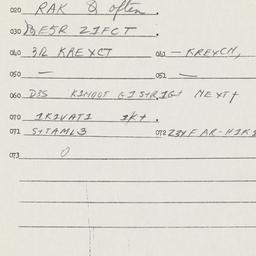 020 RAK & often .
030 BE5R 21FCT .
040 3R KREXCT 041 — KREXCH,
050 — 051 —
060 D3S K1M00T G1S+R1G+ NEXT+
070 1K1VAT1 1K+ .
071 S+TAML3 072 FAR-H1K1
073 0